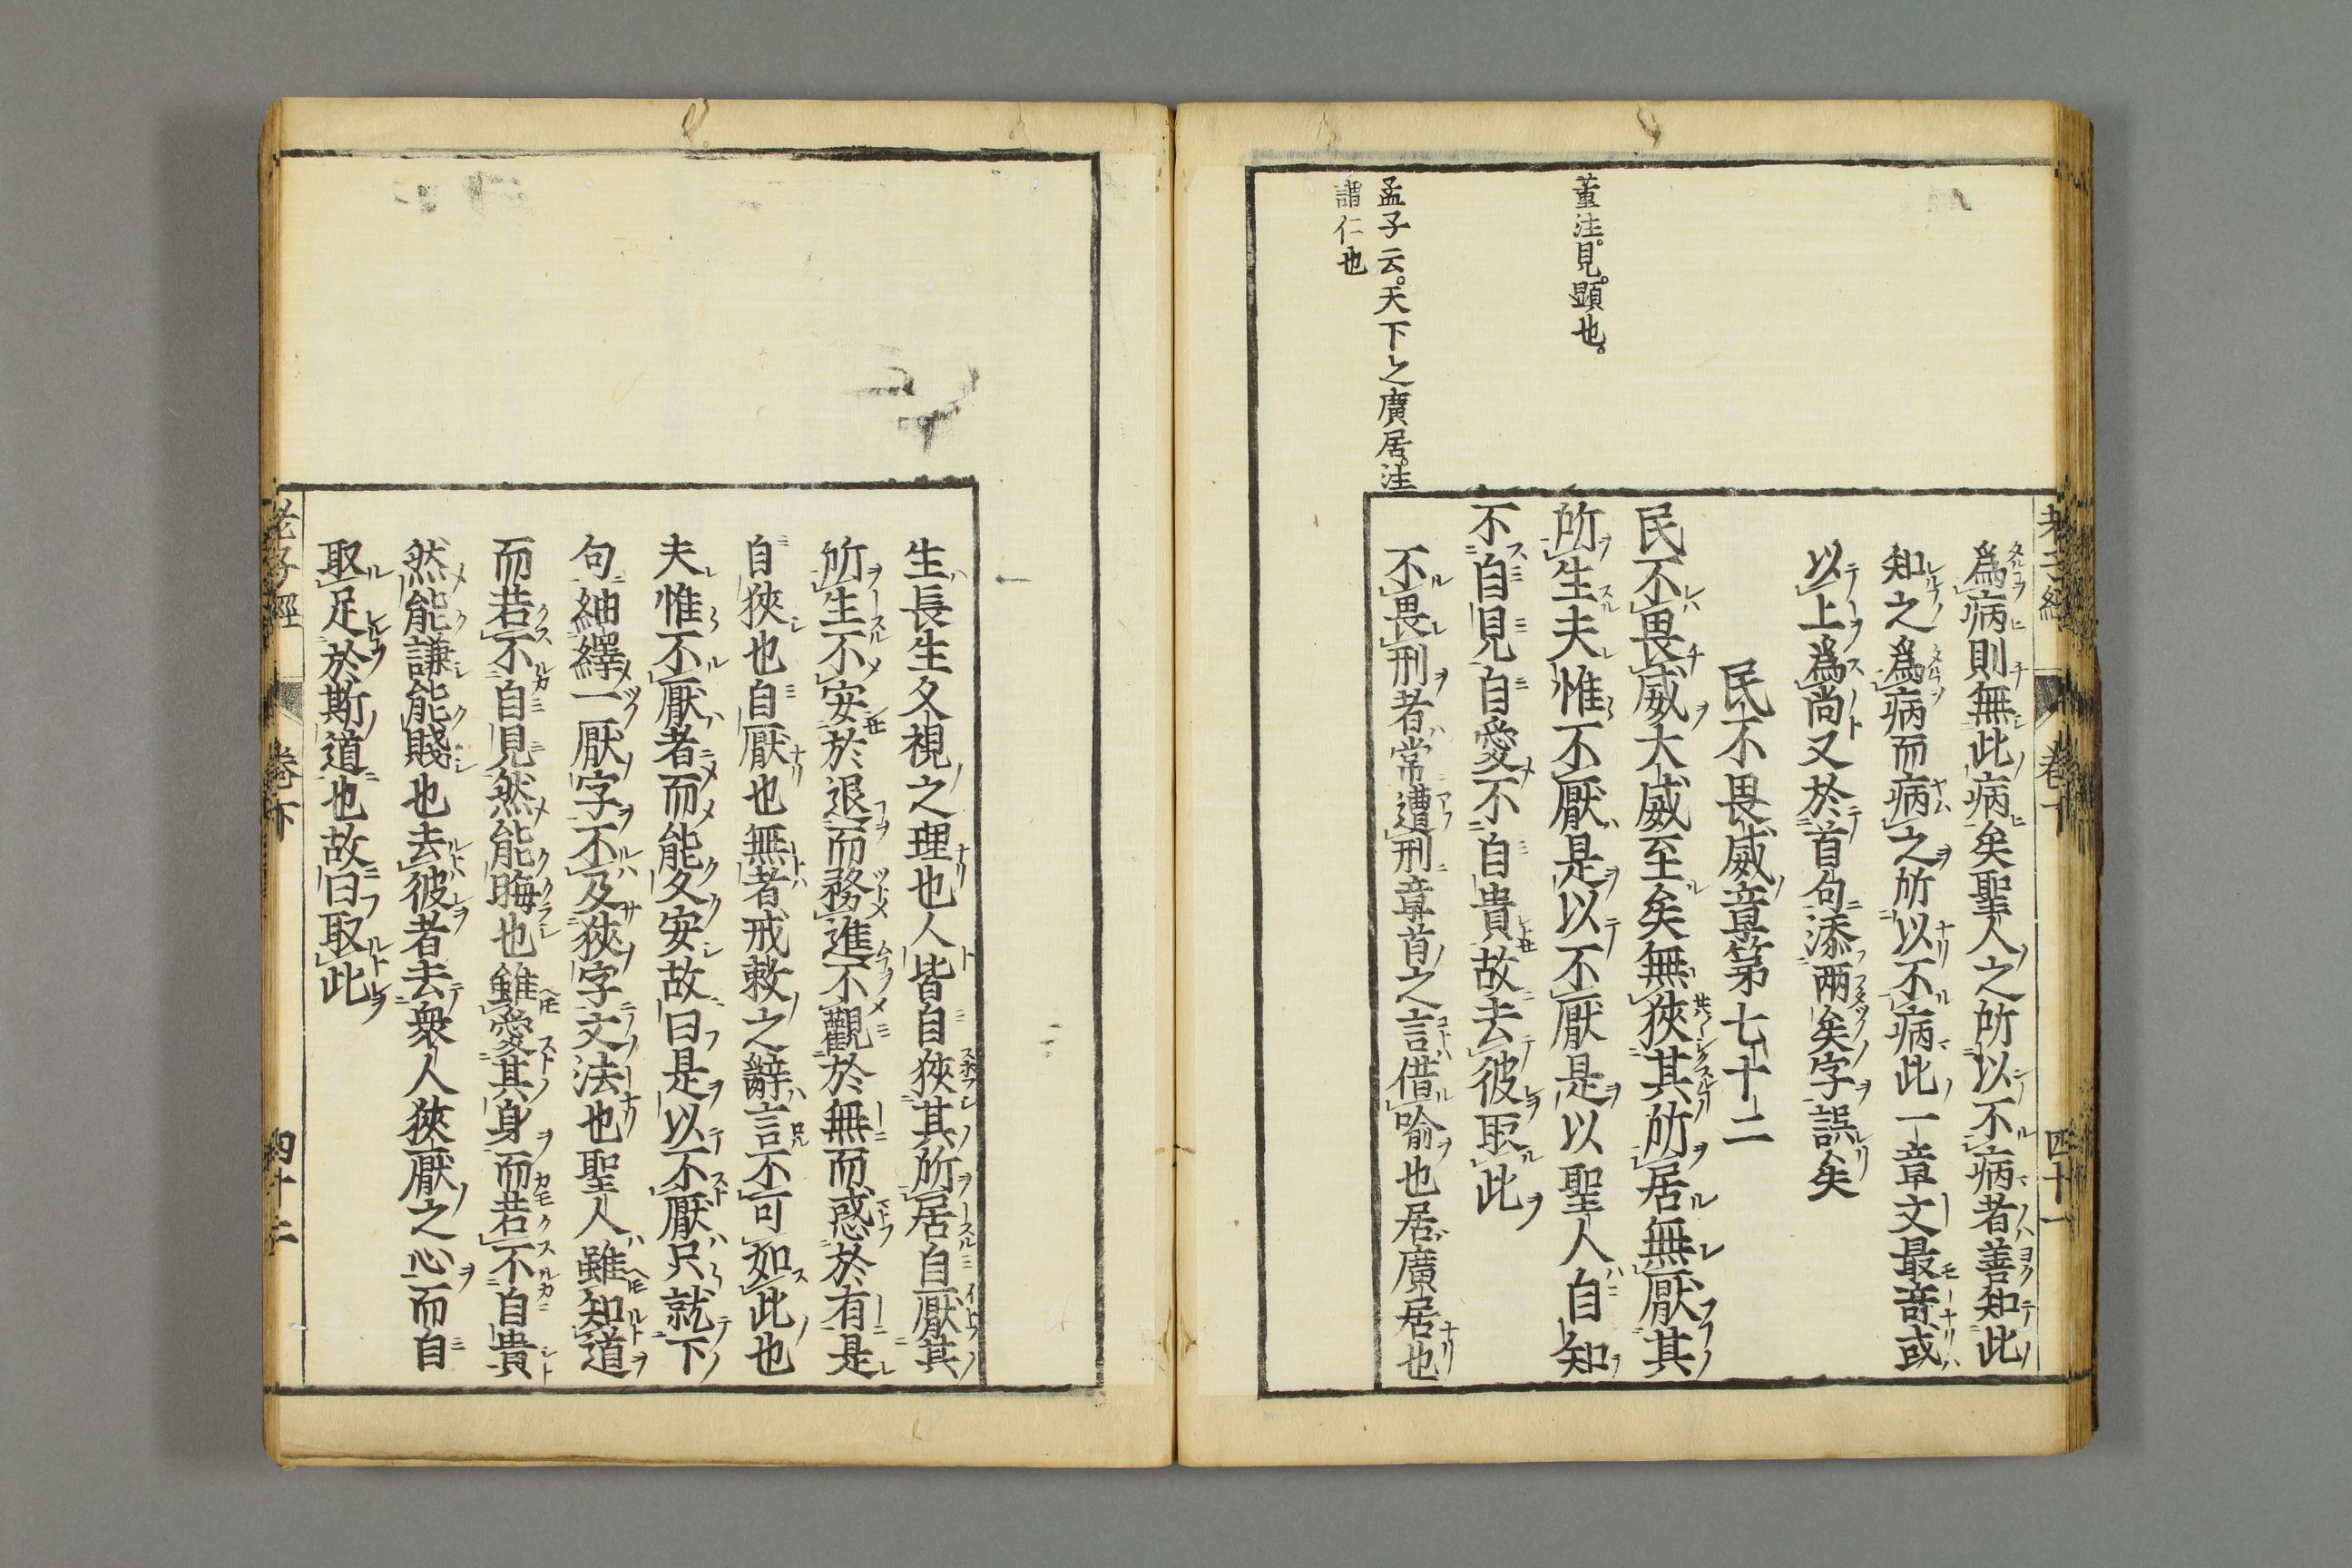 老子經 卷下 四十一
爲病則無此病矣聖人之所以不病者善知此
知之爲病而病之所以不病此一章文最奇或
以上爲尚又於首句添兩矣字誤矣
民不畏威章第七十二
董注。見。顕也。
民不畏威大威至矣無狹其所居無厭其
所生夫惟不厭是以不厭是以聖人自知
不自見自愛不自貴故去彼取此
孟子云。天下之廣居。注
謂仁也
不畏刑者常遭刑章首之言借喩也居廣居也
生長生久視之理也人皆自狹其所居自厭其
所生不安於退而務進不觀於無而惑於有是
自狹也自厭也無者戒敕之辭言不可如此也
夫惟不厭者而能久安故曰是以不厭只就下
句紬繹一厭字不及狹字文法也聖人雖知道
而若不自見然能晦也雖愛其身而若不自貴
然能謙能賤也去彼者去衆人狹厭之心而自
取足於斯道也故曰取此
老子經 卷下 四十二